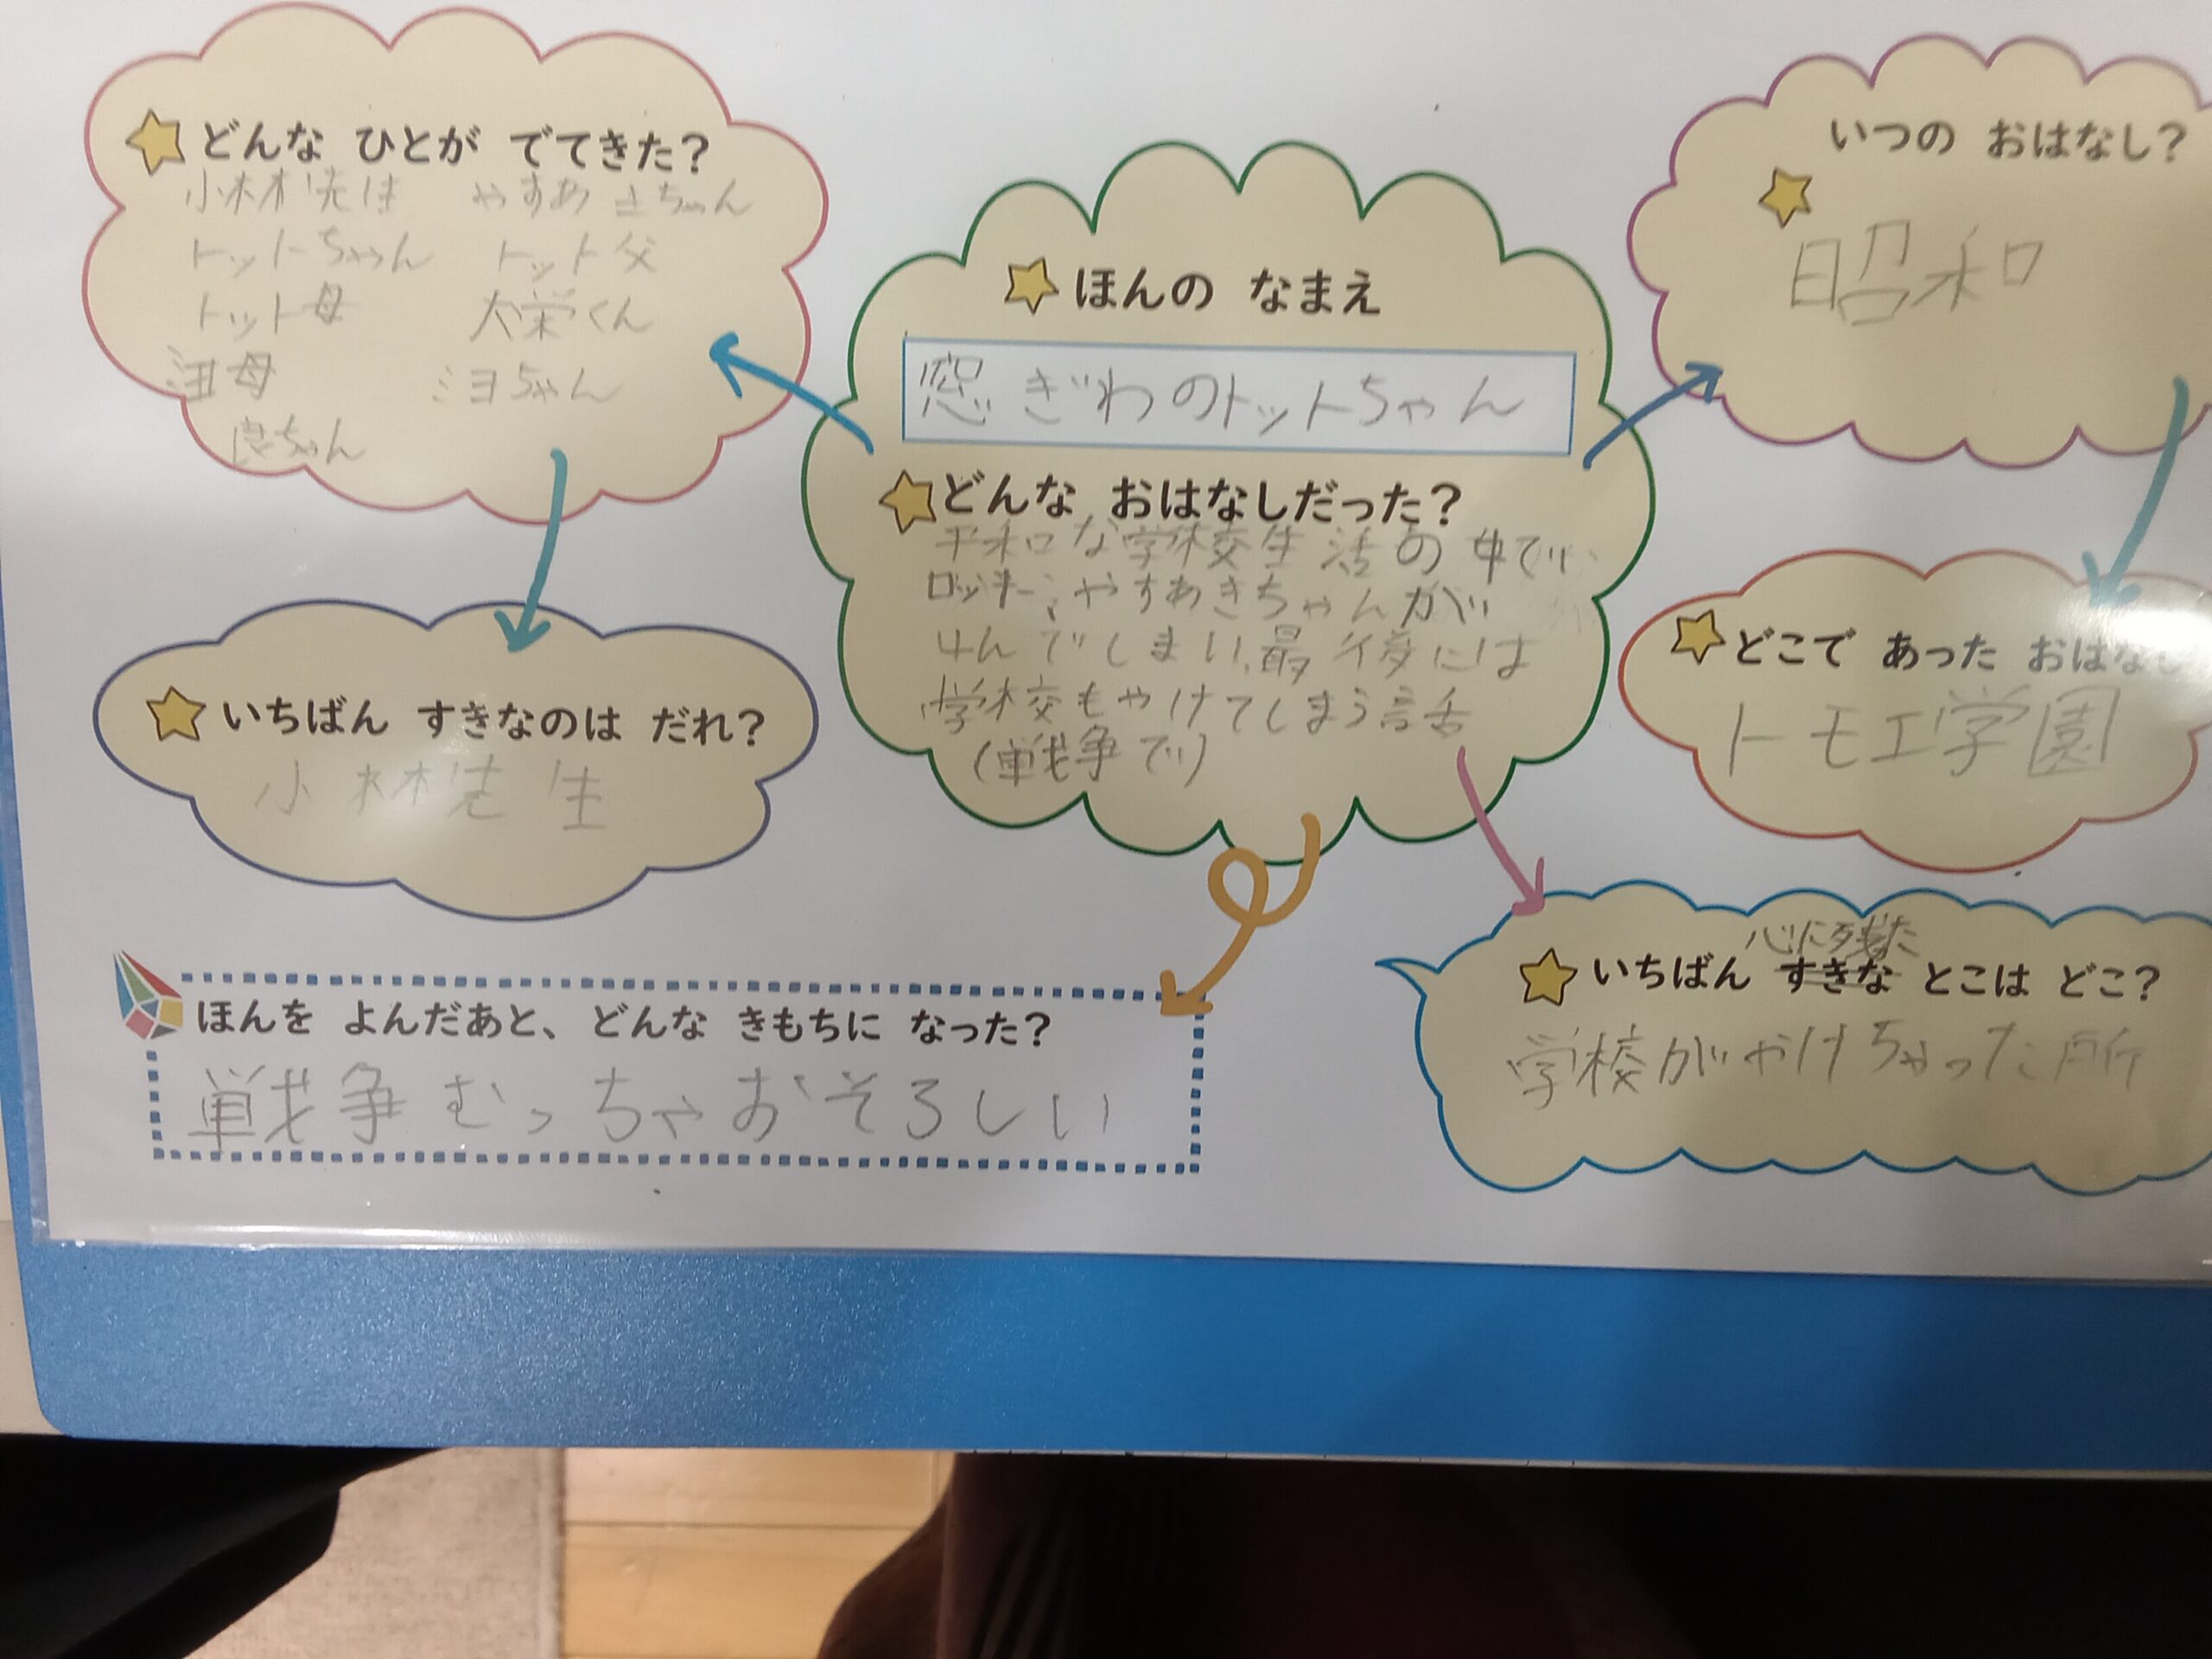 どんな ひとが でてきた?
小林先生 やすあきちゃん
トットちゃん トット父
トット母 大栄くん
母 ミヨちゃん
ちゃん
いちばん すきなのは だれ?
小林先生
ほんの なまえ
窓ぎわのトットちゃん
どんな おはなしだった?
平和な学校生活の中で、
ロッキー、やすあきちゃんが
しんでしまい、最後には
学校もやけてしまう話
(戦争で)
いつの おはなし?
昭和
どこで あった おはなし
トモエ学園
心に残った
いちばん すきな とこは どこ?
学校がやけちゃった所
ほんを よんだあと、どんな きもちに なった?
戦争むっちゃおそろしい